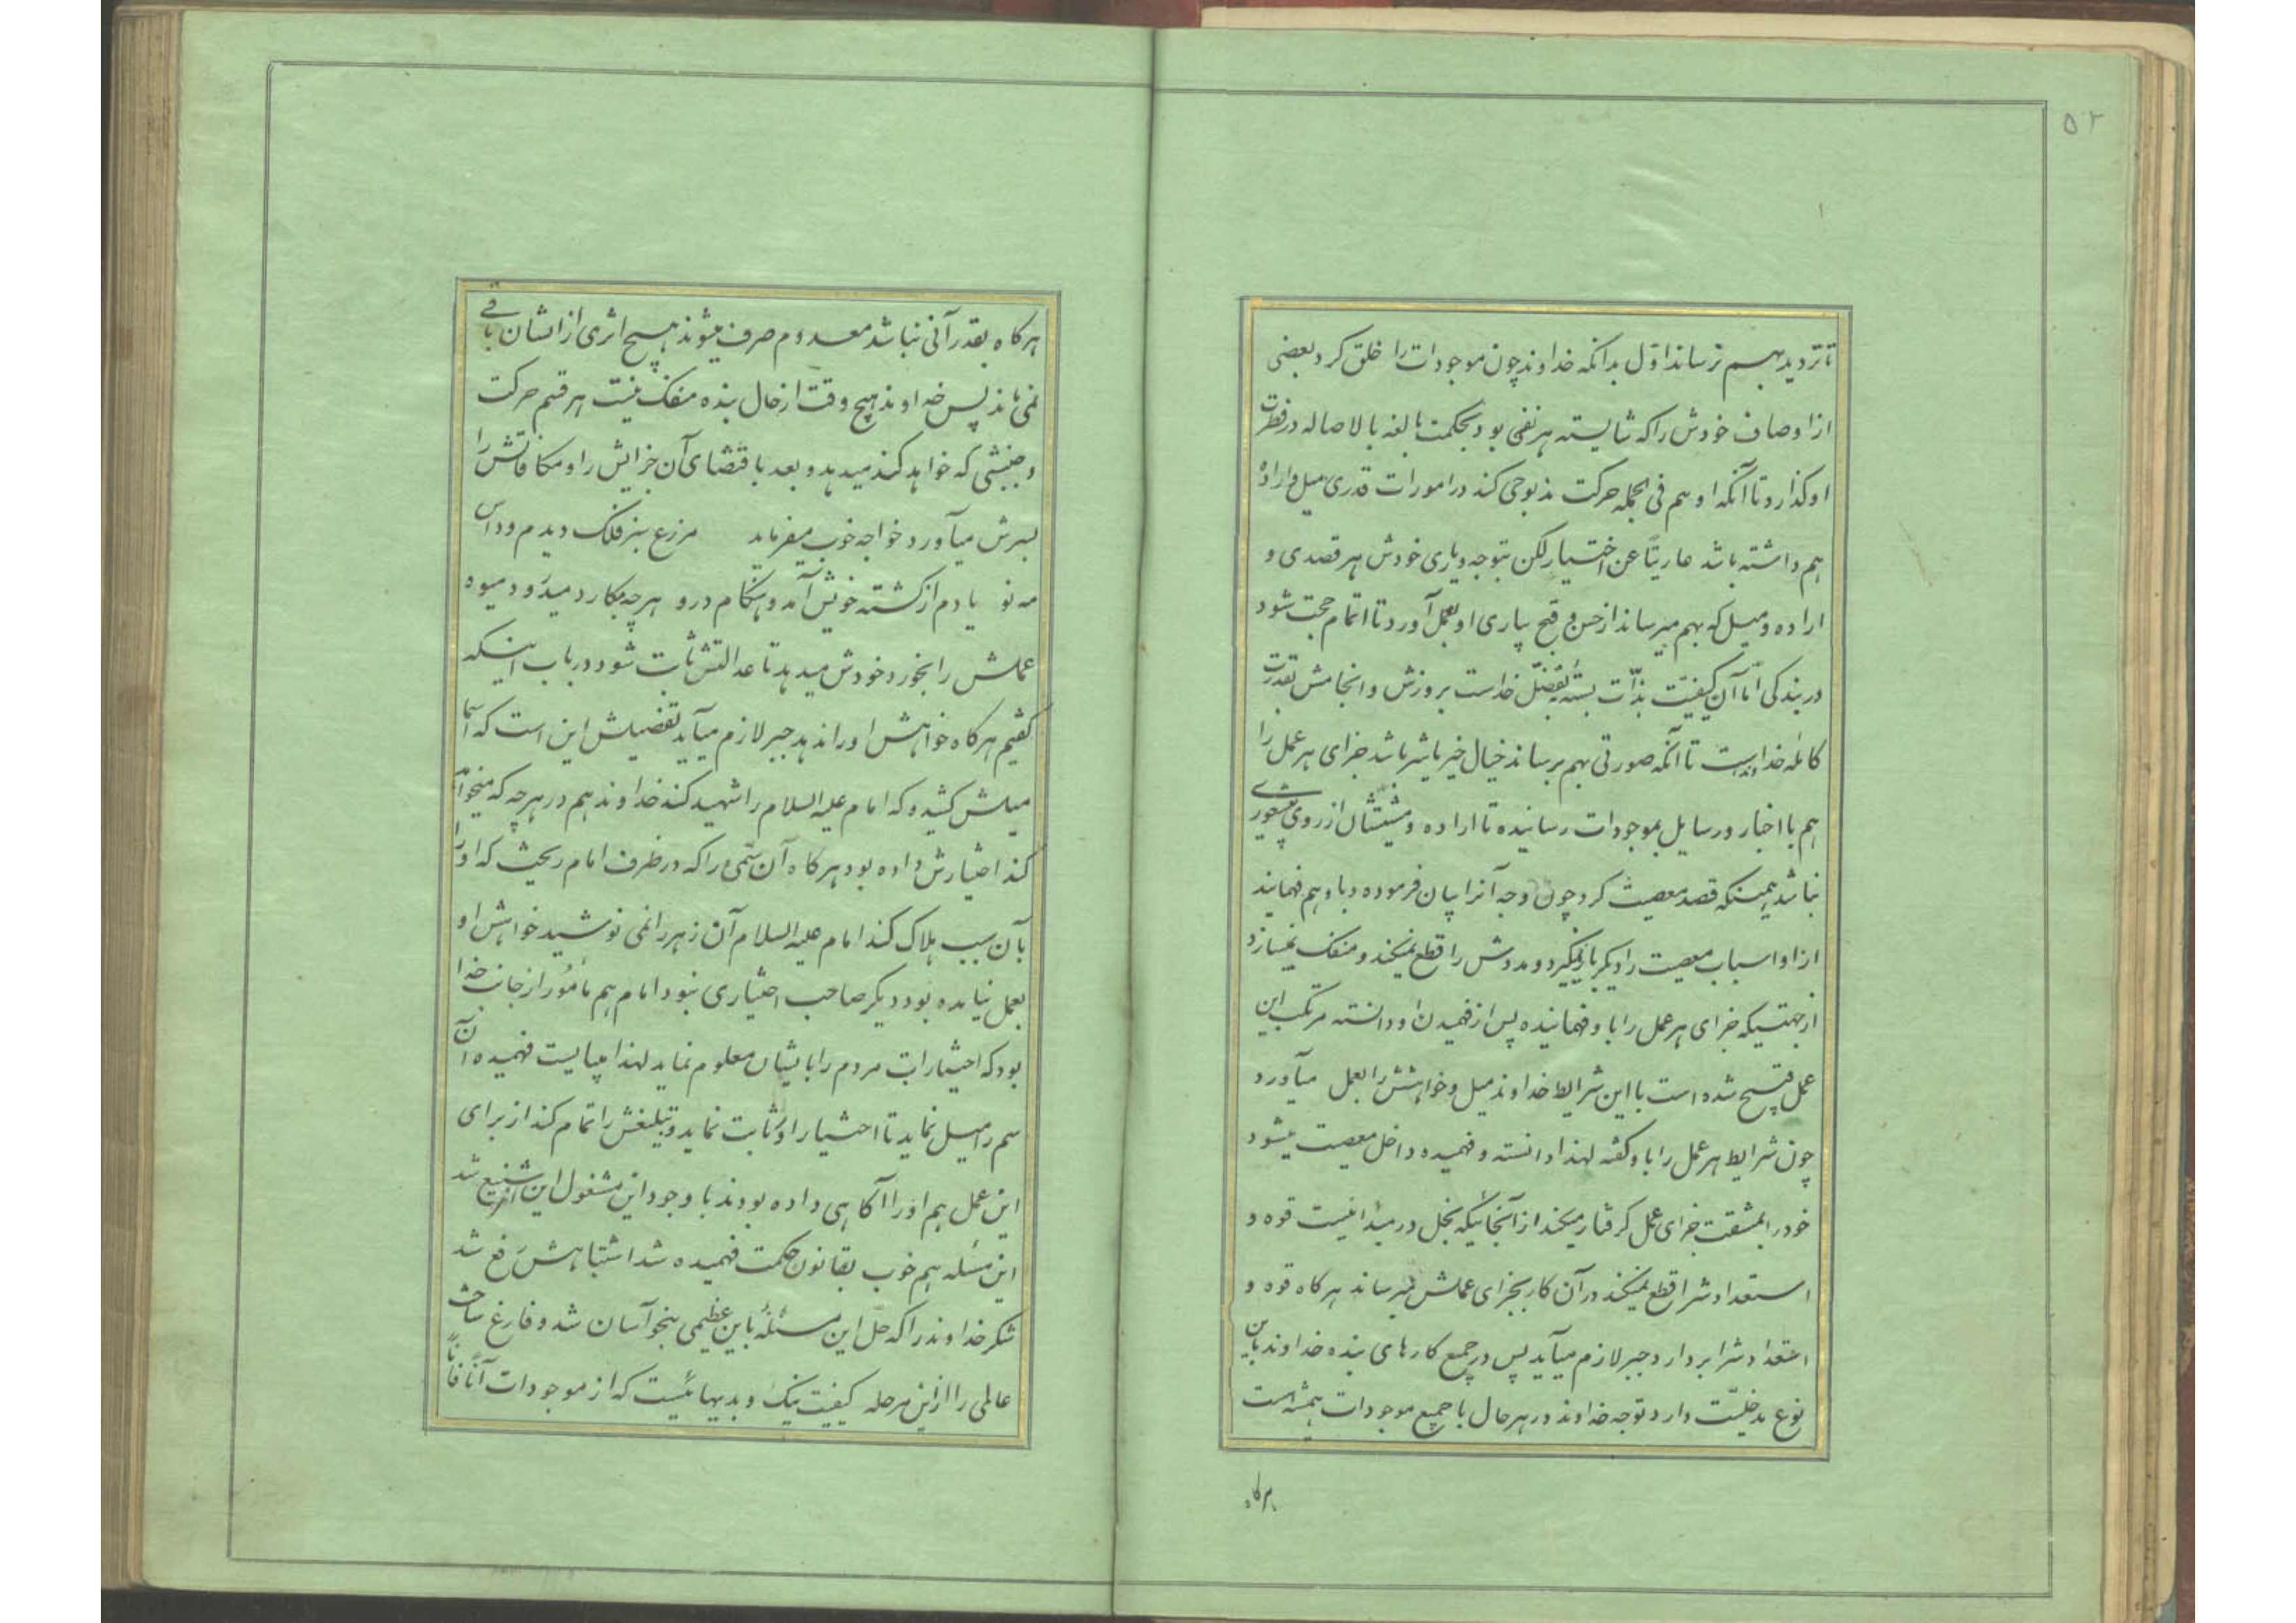 ۵۲
تا تردید بهم نرساند اول بدانکه خداوند چون موجودات را خلق کرد بعضی
از اوصاف خودش را که شایسته هر نفی بود بحکمت بالغه بالاصاله در فطرت
او گذارد تا آنکه او هم فی الجمله حرکت مذبوحی کند در امورات قدری میل و اراده
هم داشته باشد عاریتاً عن اختیار لکن بتوجه و یاری خودش هر قصدی و
اراده و میل که بهم میرساند از حسن و قبح بیاری او بعمل آورد تا اتمام حجت شود
در بندگی اما آن کیفیت بذات بسته بتفضل خداست بروزش و انجامش بقدرت
کامله خداوند است تا آنکه صورتی بهم برساند خیال خیر یا شر باشد جزای هر عمل را
هم با اخبار و رسایل بموجودات رسانیده تا اراده و مشیتشان از روی بیشعوری
نباشد همینکه قصد معصیت کرد چون وجه آنرا بیان فرموده و باو هم فهمانید
از او اسباب معصیت را دیگر باز نمیگیرد و مددش را قطع نمیکند و منفک نمیسازد
از جهتیکه جزای هر عمل را باو فهمانیده پس از فهمیدن او دانسته مرتکب این
عمل قبیح شده است با این شرایط خداوند میل و خواهشش را بعمل میآورد
چون شرایط هر عمل را باو گفته لهذا دانسته و فهمیده داخل معصیت میشود
خود را بمشقت جزای عمل گرفتار میکند از آنجائیکه بخل در مبدأ نیست قوه و
استعدادش را قطع نمیکند در آن کار بجزای عملش میرساند هر گاه قوه و
استعدادش را بردارد جبر لازم میآید پس در جمیع کارهای بنده خداوند باین
نوع مدخلیت دارد توجه خداوند در هر حال با جمیع موجودات همیشه است
هر گاه
هر گاه بقدر آنی نباشد معدوم صرف میشوند هیچ اثری از ایشان باقی
نمی ماند پس خداوند هیچ وقت از حال بنده منفک نیست هر قسم حرکت
و جنبشی که خواهد کند میدهد و بعد باقتضای آن جزایش را و مکافاتش را
بسرش میآورد خواجه خوب میفرماید مزرع سبز فلک دیدم و داس
مه نو یادم از کشته خویش آمد و هنگام درو هر چه بکارد میدرود میوه
عملش را بخورد خودش میدهد تا عدالتش ثابت شود در باب اینکه
گفتیم هر گاه خواهش او را ندهد جبر لازم میآید تفصیلش این است که اسما
میلش کشید که امام علیه السلام را شهید کند خداوند هم در هر چه که میخواست
کند اختیارش داده بود هر گاه آن سمی را که در ظرف امام ریخت که او را
بآن سبب هلاک کند امام علیه السلام آن زهر را نمی نوشید خواهش او
بعمل نیامده بود دیگر صاحب اختیاری نبود امام هم مأمور از جانب خدا
بود که اختیارات مردم را بایشان معلوم نماید لهذا میبایست فهمیده آن
سم را میل نماید تا اختیار او ثابت نماید و تبلیغش را تمام کند از برای
این عمل هم او را آگاهی داده بودند با وجود این مشغول این امر شنیع شد
این مسئله هم خوب بقانون حکمت فهمیده شد اشتباهش رفع شد
شکر خداوند را که حل این مسئله باین عظیمی بنحو آسان شد و فارغ ساخت
عالمی را از این مرحله کیفیت نیک و بدیهائیست که از موجودات آناً فاناً